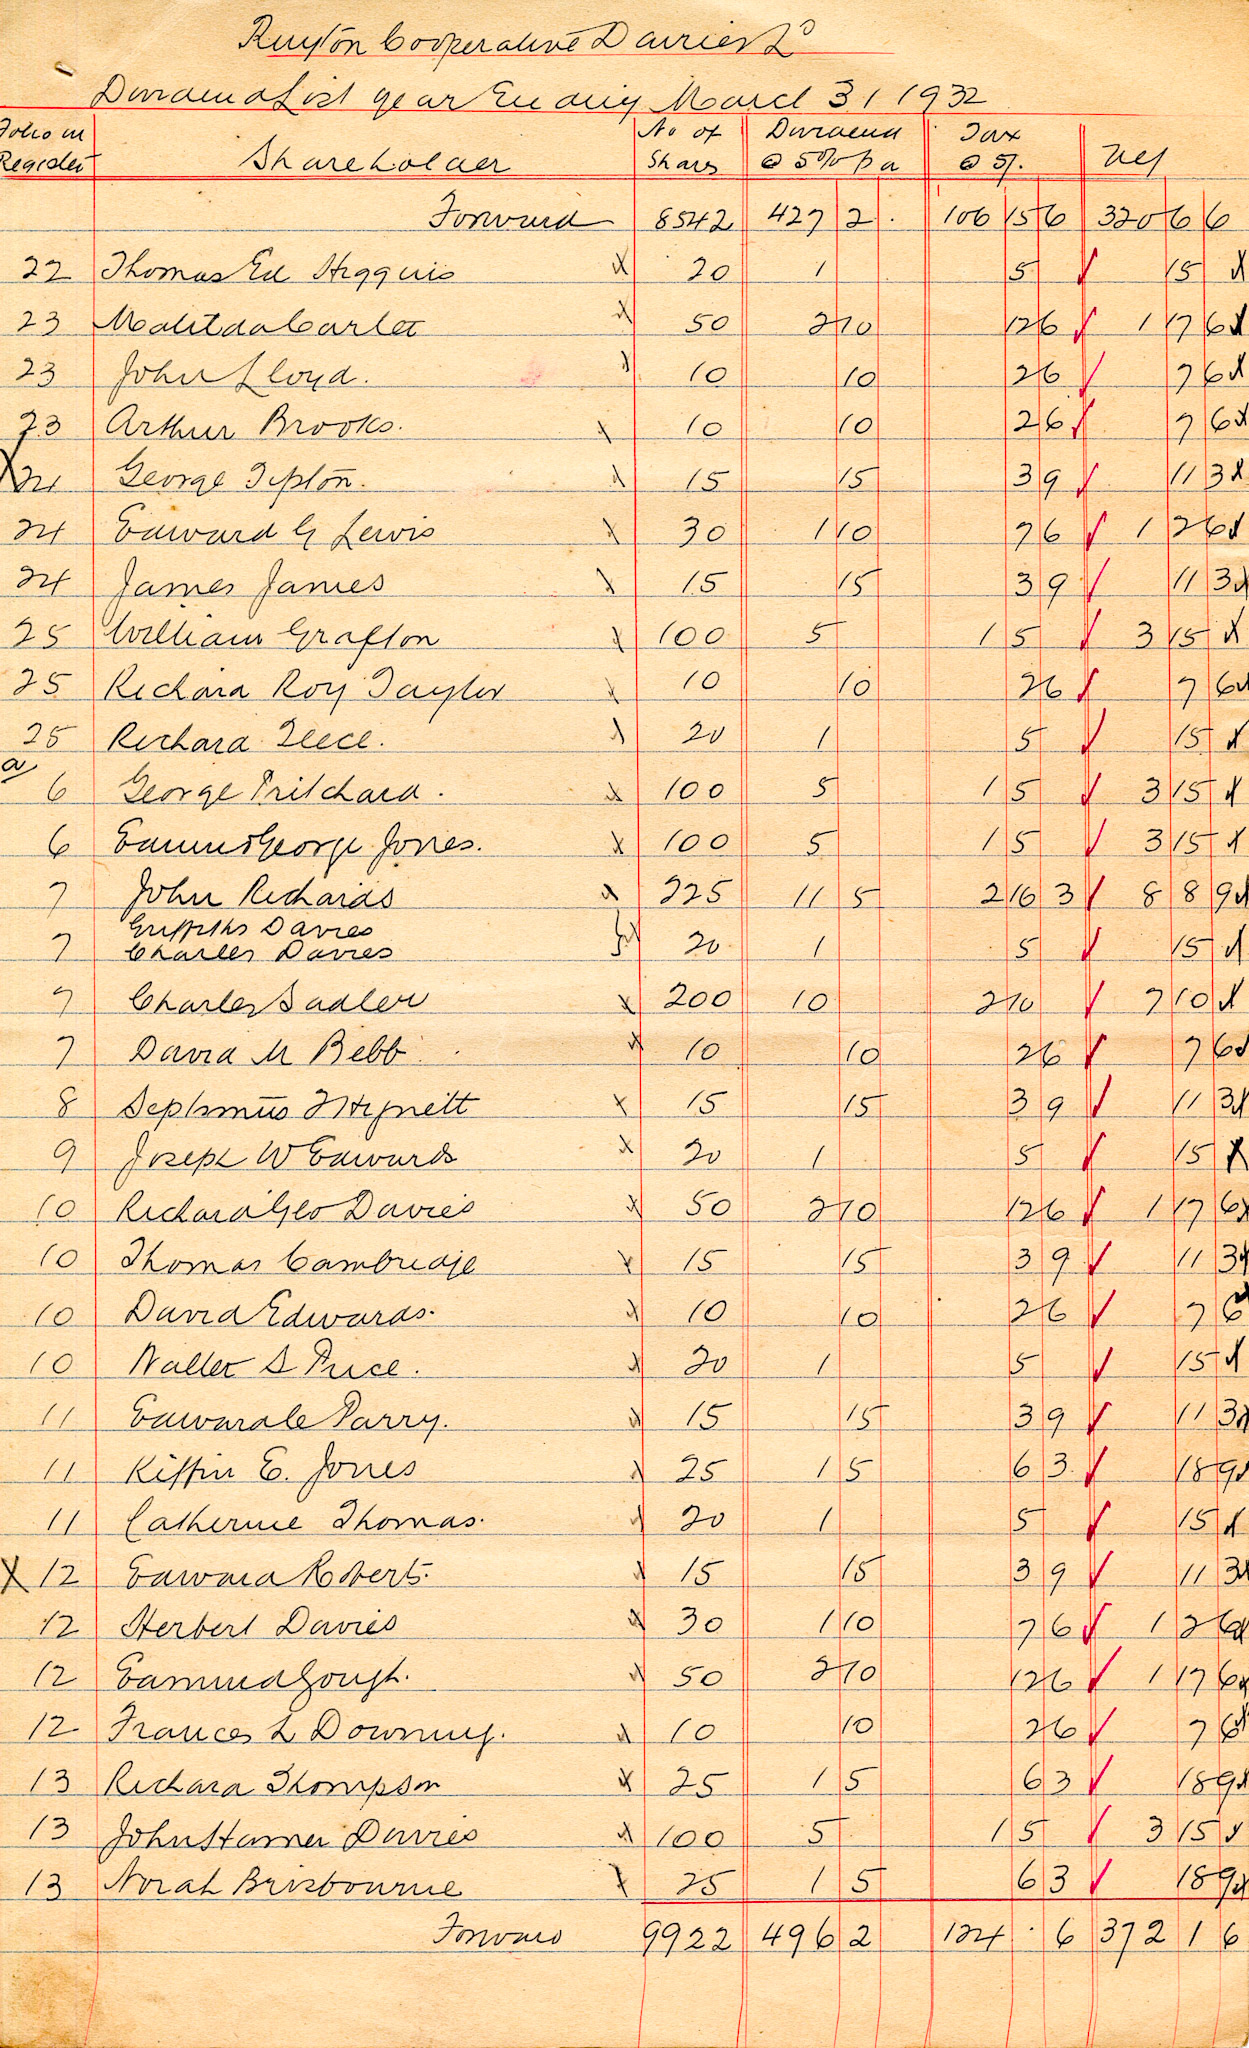 Ruyton Cooperative Dairies Ld
Dividend List year Ending March 31 1932
Folio in Register Shareholder No of Shares Dividend @ 5% pa Tax @ 5/. Net
Forward 8542 427 2 . 106 15 6 320 6 6
22 Thomas Ed Higgins x 20 1 5 ✓ 15 x
23 Matilda Carter x 50 2 10 12 6 ✓ 1 17 6 x
23 John Lloyd. x 10 10 2 6 ✓ 7 6 x
23 Arthur Brooks. x 10 10 2 6 ✓ 7 6 x
X 24 George Tipton. x 15 15 3 9 ✓ 11 3 x
24 Edward G Lewis x 30 1 10 7 6 ✓ 1 2 6 x
24 James James x 15 15 3 9 ✓ 11 3 x
25 William Grafton x 100 5 1 5 ✓ 3 15 x
25 Richard Roy Taylor x 10 10 2 6 ✓ 7 6 x
25 Richard Teece. x 20 1 5 ✓ 15 x
a
6 George Pritchard. x 100 5 1 5 ✓ 3 15 x
6 George Jones. x 100 5 1 5 ✓ 3 15 x
7 John Richards x 225 11 5 2 16 3 ✓ 8 8 9 x
Griffiths Davies
7 Charles Davies } x 20 1 5 ✓ 15 x
7 Charles Sadler x 200 10 2 10 ✓ 7 10 x
7 David M Bebb x 10 10 2 6 ✓ 7 6 x
8 Septimus x 15 15 3 9 ✓ 11 3 x
9 Joseph W Edwards x 20 1 5 ✓ 15 x
10 Richard Geo Davies x 50 2 10 12 6 ✓ 1 17 6 x
10 Thomas Cambridge x 15 15 3 9 ✓ 11 3 x
10 David Edwards. x 10 10 2 6 ✓ 7 6 x
10 Walter S Price. x 20 1 5 ✓ 15 x
11 Edward C Parry. x 15 15 3 9 ✓ 11 3 x
11 Kiffin E. Jones x 25 1 5 6 3 ✓ 18 9 x
11 Catherine Thomas. x 20 1 5 ✓ 15 x
X 12 Edward Roberts. x 15 15 3 9 ✓ 11 3 x
12 Herbert Davies x 30 1 10 7 6 ✓ 1 2 6 x
12 Edmund Gough. x 50 2 10 12 6 ✓ 1 17 6 x
12 Frances L Downing. x 10 10 2 6 ✓ 7 6 x
13 Richard Thompson x 25 1 5 6 3 ✓ 18 9 x
13 John Hamer Davies x 100 5 1 5 ✓ 3 15 x
13 Norah Brisbourne x 25 1 5 6 3 ✓ 18 9 x
Forward 9922 496 2 124 . 6 372 1 6